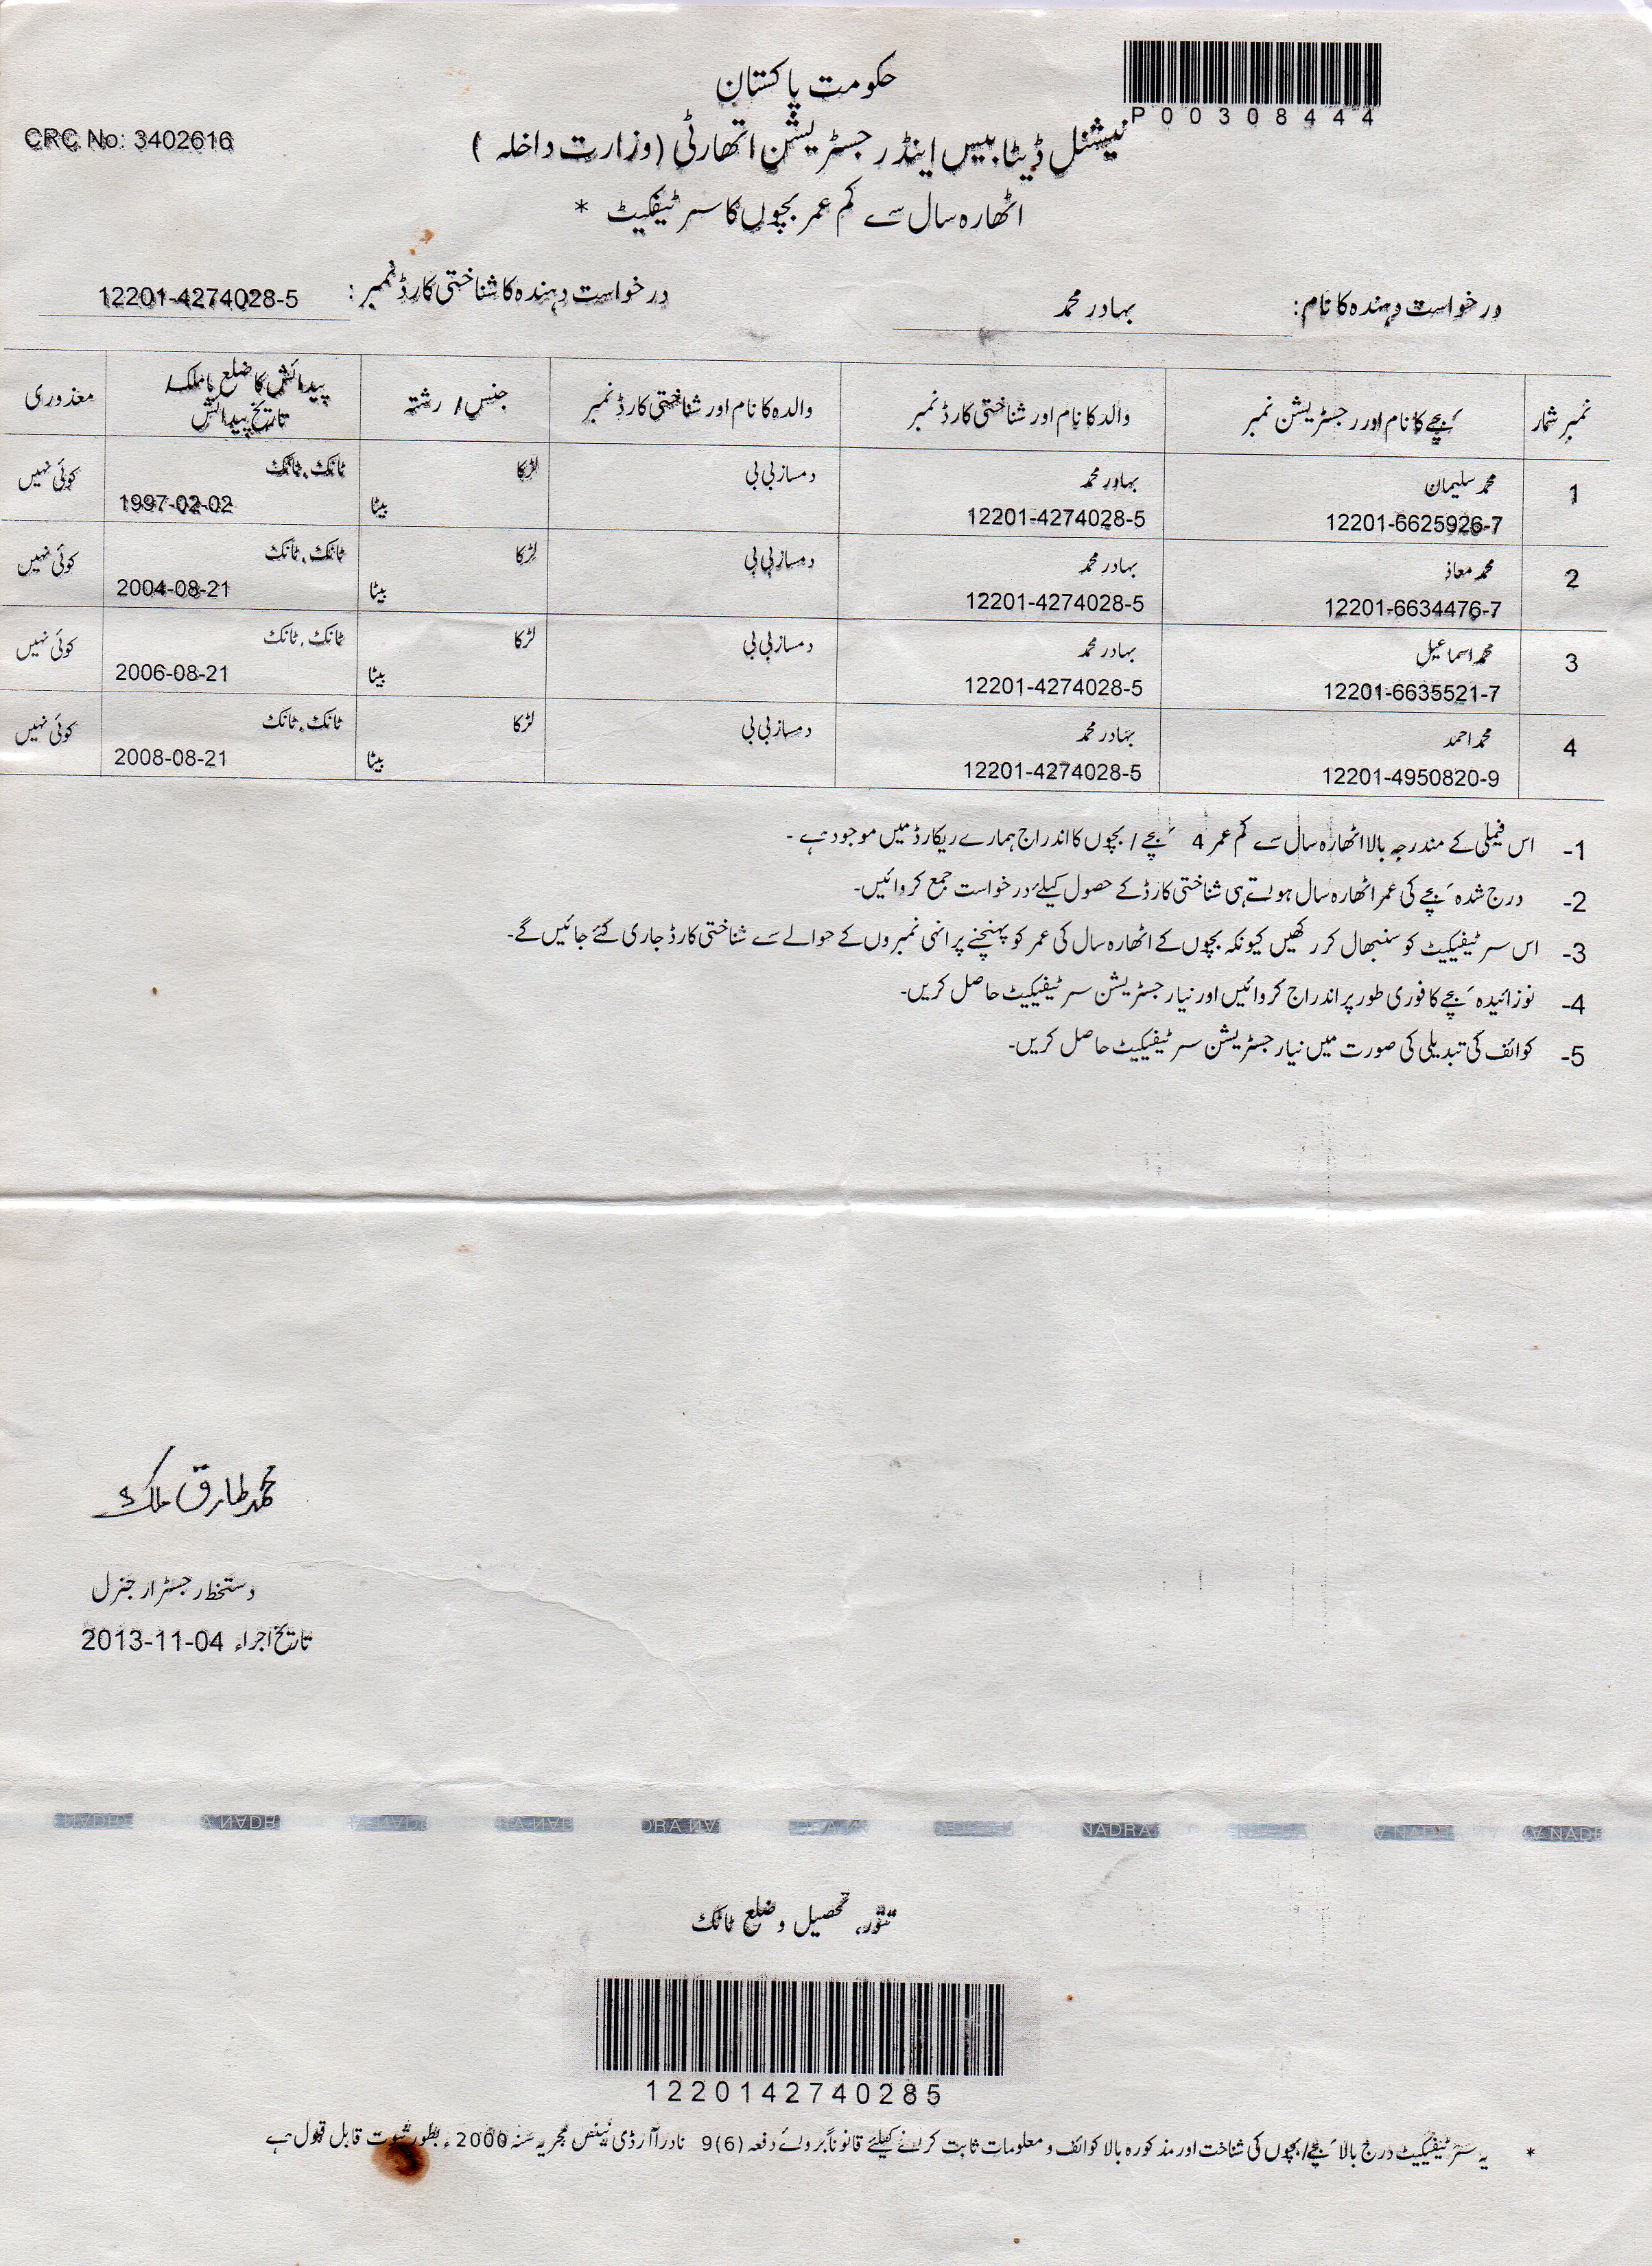 P00308444
حکومت پاکستان
CRC No: 3402616
نیشنل ڈیٹا بیس اینڈ رجسٹریشن اتھارٹی (وزارت داخلہ)
اٹھارہ سال سے کم عمر بچوں کا سرٹیفکیٹ *
درخواست دہندہ کا نام: بہادر محمد درخواست دہندہ کا شناختی کارڈ نمبر: 12201-4274028-5
نمبر شمار بچے کا نام اور رجسٹریشن نمبر والد کا نام اور شناختی کارڈ نمبر والدہ کا نام اور شناختی کارڈ نمبر جنس / رشتہ پیدائش کا ضلع یا ملک / معذوری
تاریخ پیدائش
1 محمد سلیمان بہادر محمد دمساز بی بی لڑکا ٹانک، ٹانک کوئی نہیں
12201-6625926-7 12201-4274028-5 بیٹا 1997-02-02
2 محمد معاذ بہادر محمد دمساز بی بی لڑکا ٹانک، ٹانک کوئی نہیں
12201-6634476-7 12201-4274028-5 بیٹا 2004-08-21
3 محمد اسماعیل بہادر محمد دمساز بی بی لڑکا ٹانک، ٹانک کوئی نہیں
12201-6635521-7 12201-4274028-5 بیٹا 2006-08-21
4 محمد احمد بہادر محمد دمساز بی بی لڑکا ٹانک، ٹانک کوئی نہیں
12201-4950820-9 12201-4274028-5 بیٹا 2008-08-21
1- اس فیملی کے مندرجہ بالا اٹھارہ سال سے کم عمر 4 بچے / بچوں کا اندراج ہمارے ریکارڈ میں موجود ہے۔
2- درج شدہ بچے کی عمر اٹھارہ سال ہوتے ہی شناختی کارڈ کے حصول کیلئے درخواست جمع کروائیں۔
3- اس سرٹیفیکیٹ کو سنبھال کر رکھیں کیونکہ بچوں کے اٹھارہ سال کی عمر کو پہنچنے پر انہی نمبروں کے حوالے سے شناختی کارڈ جاری کئے جائیں گے۔
4- نوزائیدہ بچے کا فوری طور پر اندراج کروائیں اور نیا رجسٹریشن سرٹیفیکیٹ حاصل کریں۔
5- کوائف کی تبدیلی کی صورت میں نیا رجسٹریشن سرٹیفیکیٹ حاصل کریں۔
محمد طارق ملک
دستخط رجسٹرار جنرل
تاریخ اجراء 2013-11-04
NADRA
تتور، تحصیل و ضلع ٹانک
1220142740285
* یہ سرٹیفیکیٹ درج بالا بچے/بچوں کی شناخت اور مذکورہ بالا کوائف و معلومات ثابت کرنے کیلئے قانوناً بروئے دفعہ 9(6) نادرا آرڈی نینس مجریہ سنہ 2000ء بطور ثبوت قابل قبول ہے